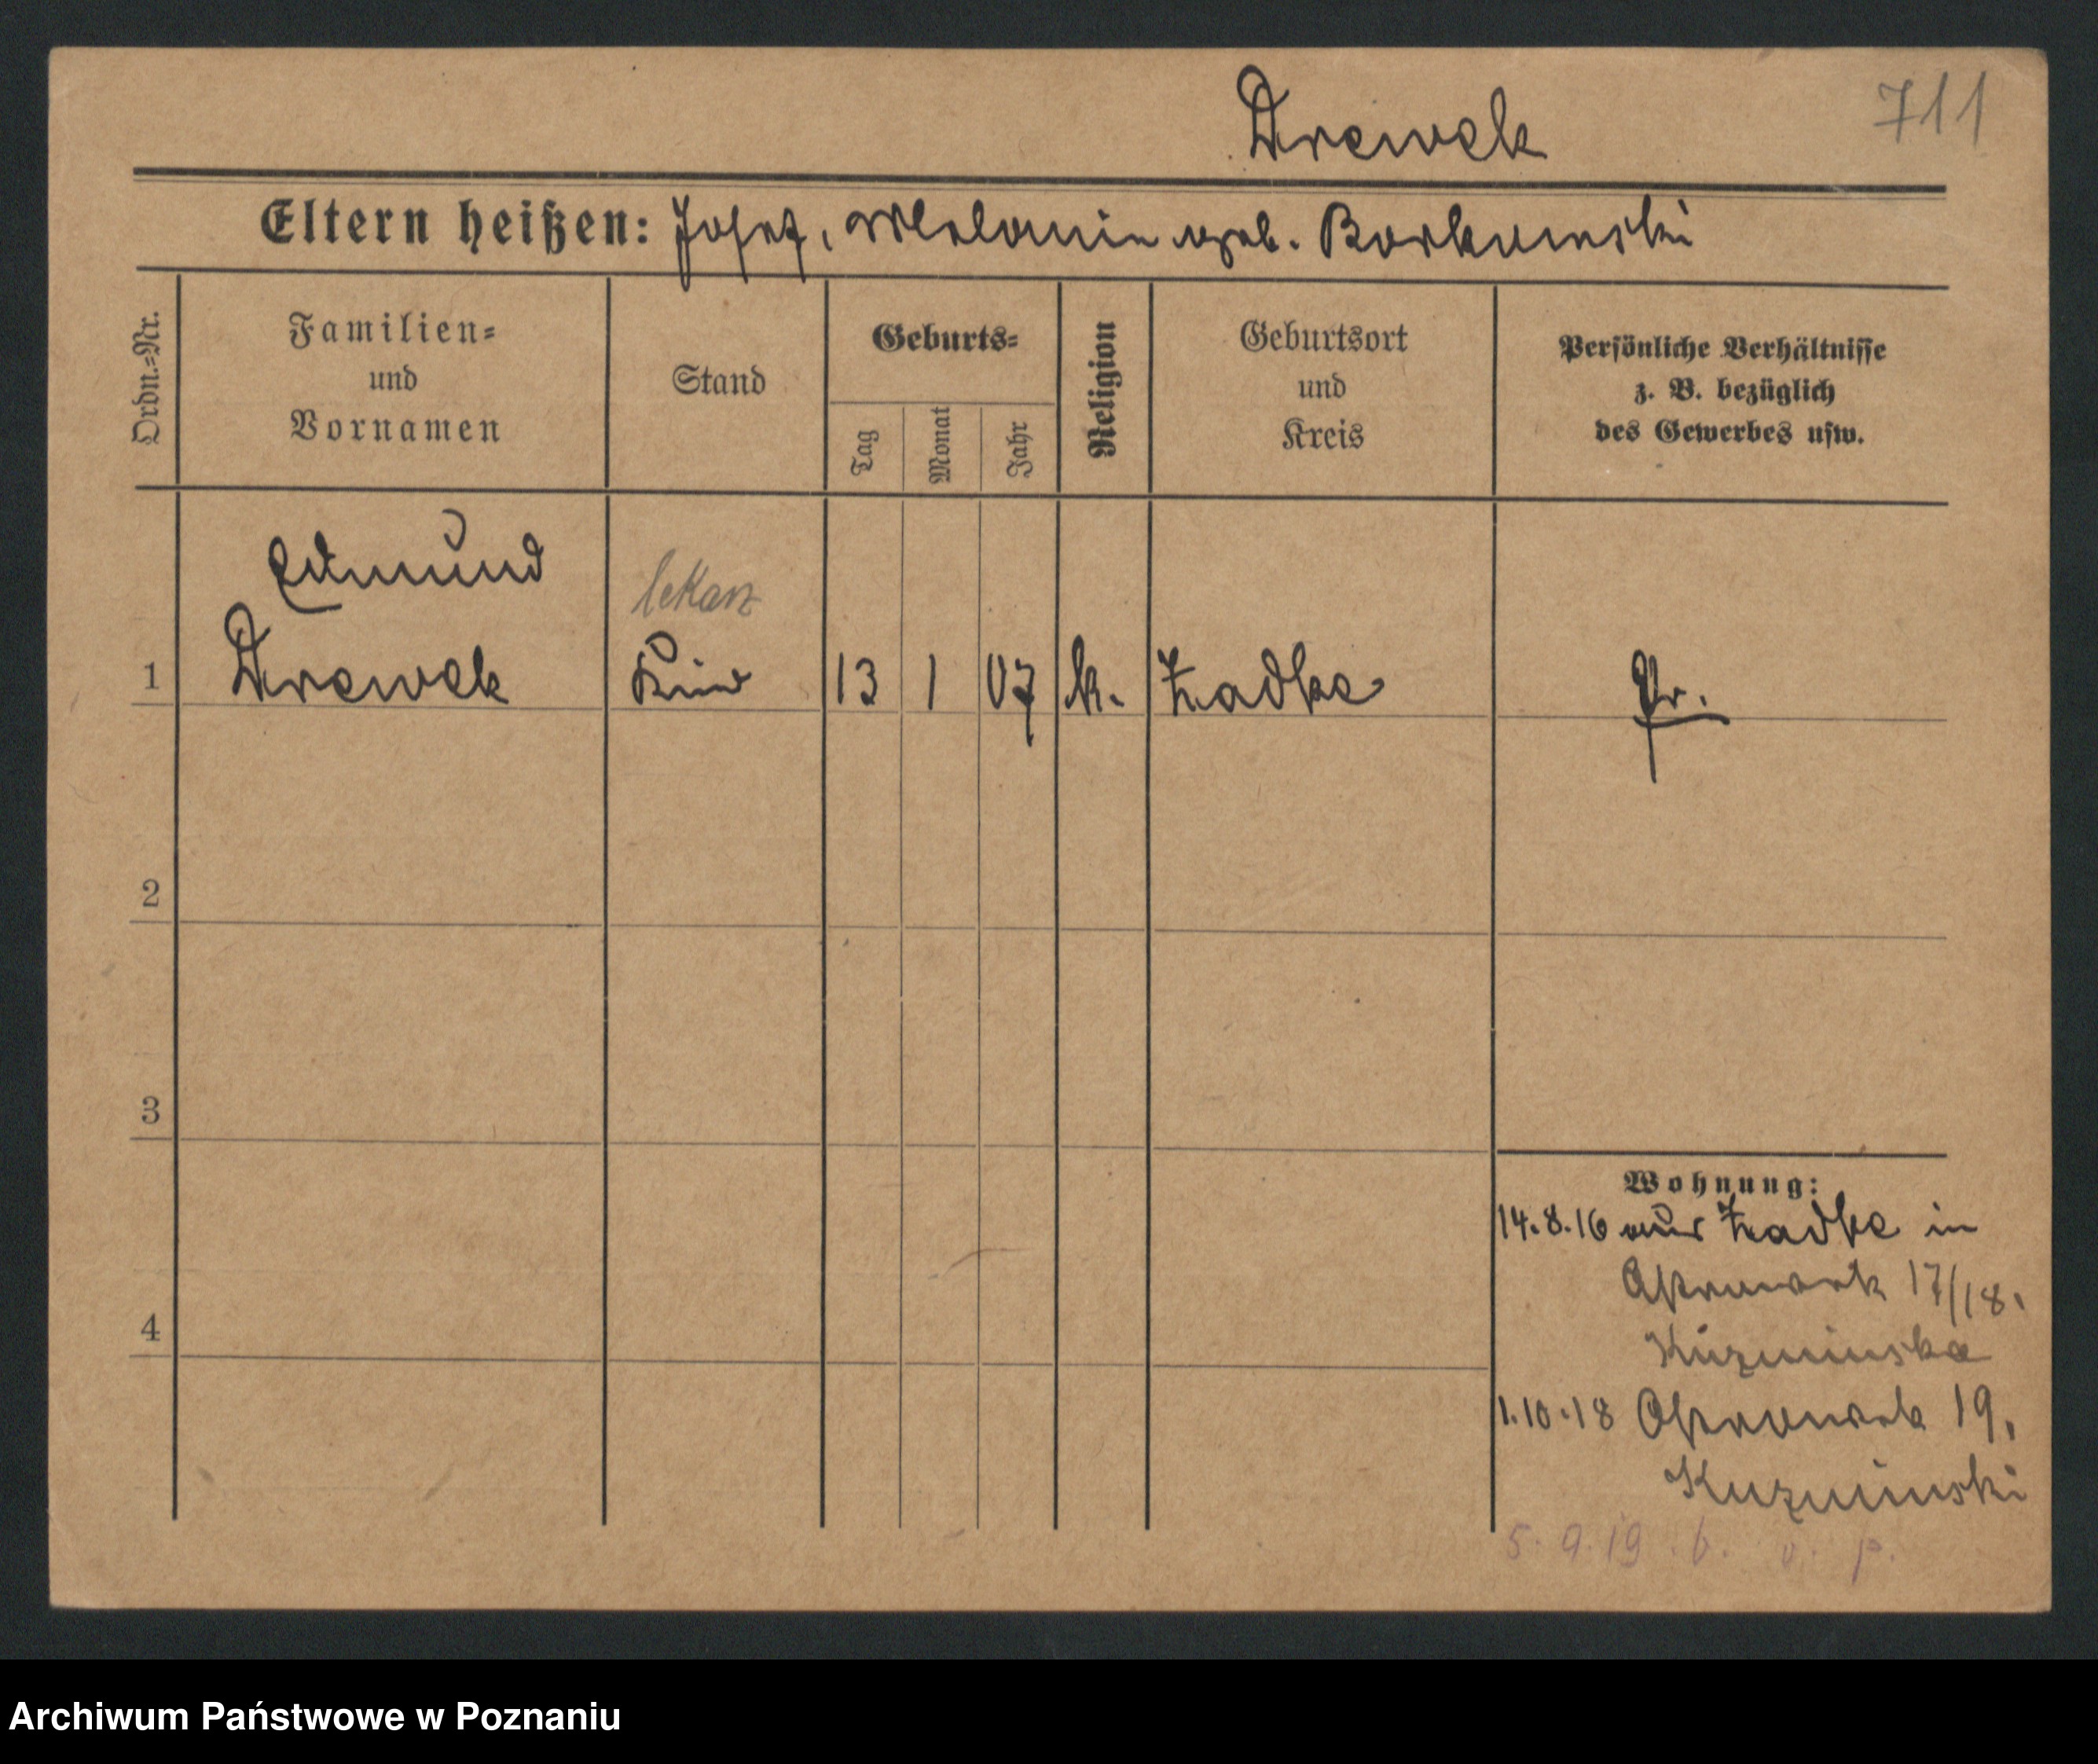 Drewek
711
Eltern heißen: Josef, Melanie geb. Borkowski
Ordn.-Nr.
Familien-
und
Vornamen
Stand
Geburts-
Tag
Monat
Jahr
Religion
Geburtsort
und
Kreis
Persönliche Verhältnisse
z. B. bezüglich
des Gewerbes usw.
Edmund
lekarz
1 Drewek Kind 13 1 07 k. Zadke Pr.
2
3
Wohnung:
14.8.16 aus Zadke in
17/18.
4
Kuzminska
1.10.18 19.
Kuzminski
5.9.19. b. v. p.
Archiwum Państwowe w Poznaniu